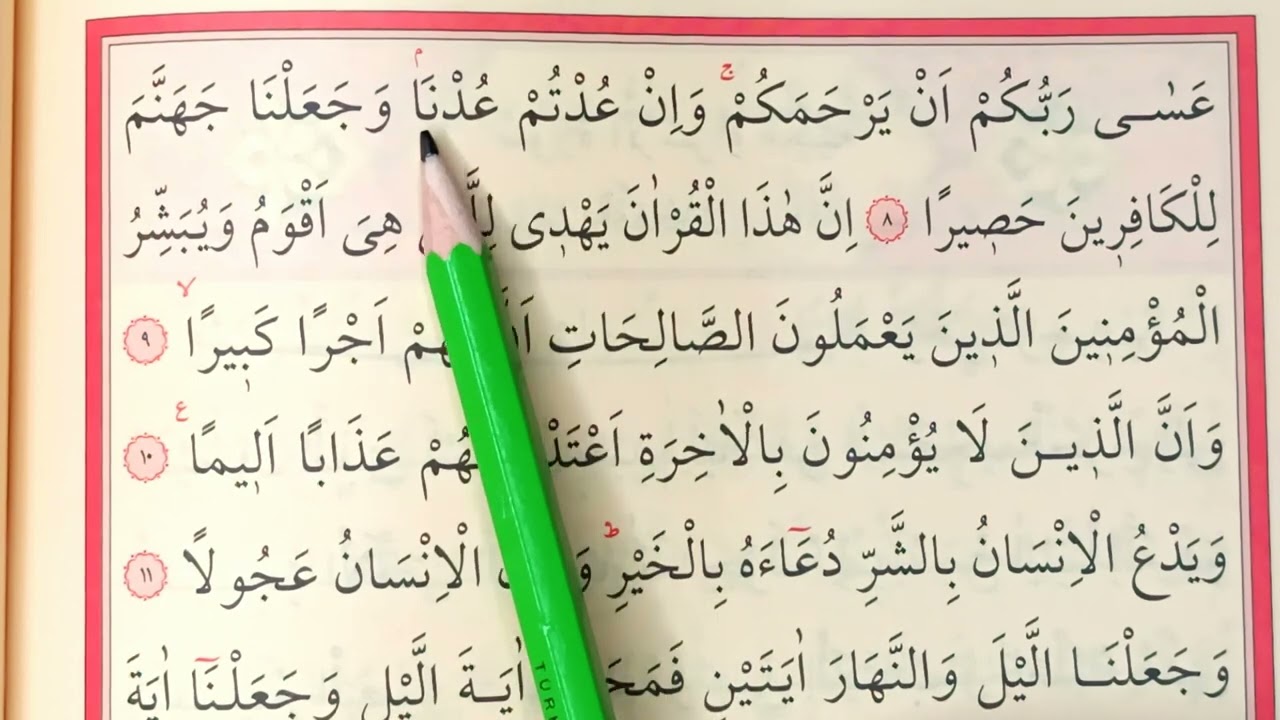 عَسٰى رَبُّكُمْ اَنْ يَرْحَمَكُمْۚ وَاِنْ عُدْتُمْ عُدْنَاۢ وَجَعَلْنَا جَهَنَّمَ
لِلْكَافِرٖينَ حَصٖيرًا ٨ اِنَّ هٰذَا الْقُرْاٰنَ يَهْدٖى هِىَ اَقْوَمُ وَيُبَشِّرُ
الْمُؤْمِنٖينَ الَّذٖينَ يَعْمَلُونَ الصَّالِحَاتِ اَجْرًا كَبٖيرًاۙ ٩
وَاَنَّ الَّذٖينَ لَا يُؤْمِنُونَ بِالْاٰخِرَةِ عَذَابًا اَلٖيمًا ع ١٠
وَيَدْعُ الْاِنْسَانُ بِالشَّرِّ دُعَٓاءَهُ بِالْخَيْرِؕ الْاِنْسَانُ عَجُولًا ١١
وَجَعَلْنَا الَّيْلَ وَالنَّهَارَ اٰيَتَيْنِ اٰيَةَ الَّيْلِ وَجَعَلْنَٓا اٰيَةَ
TÜRK